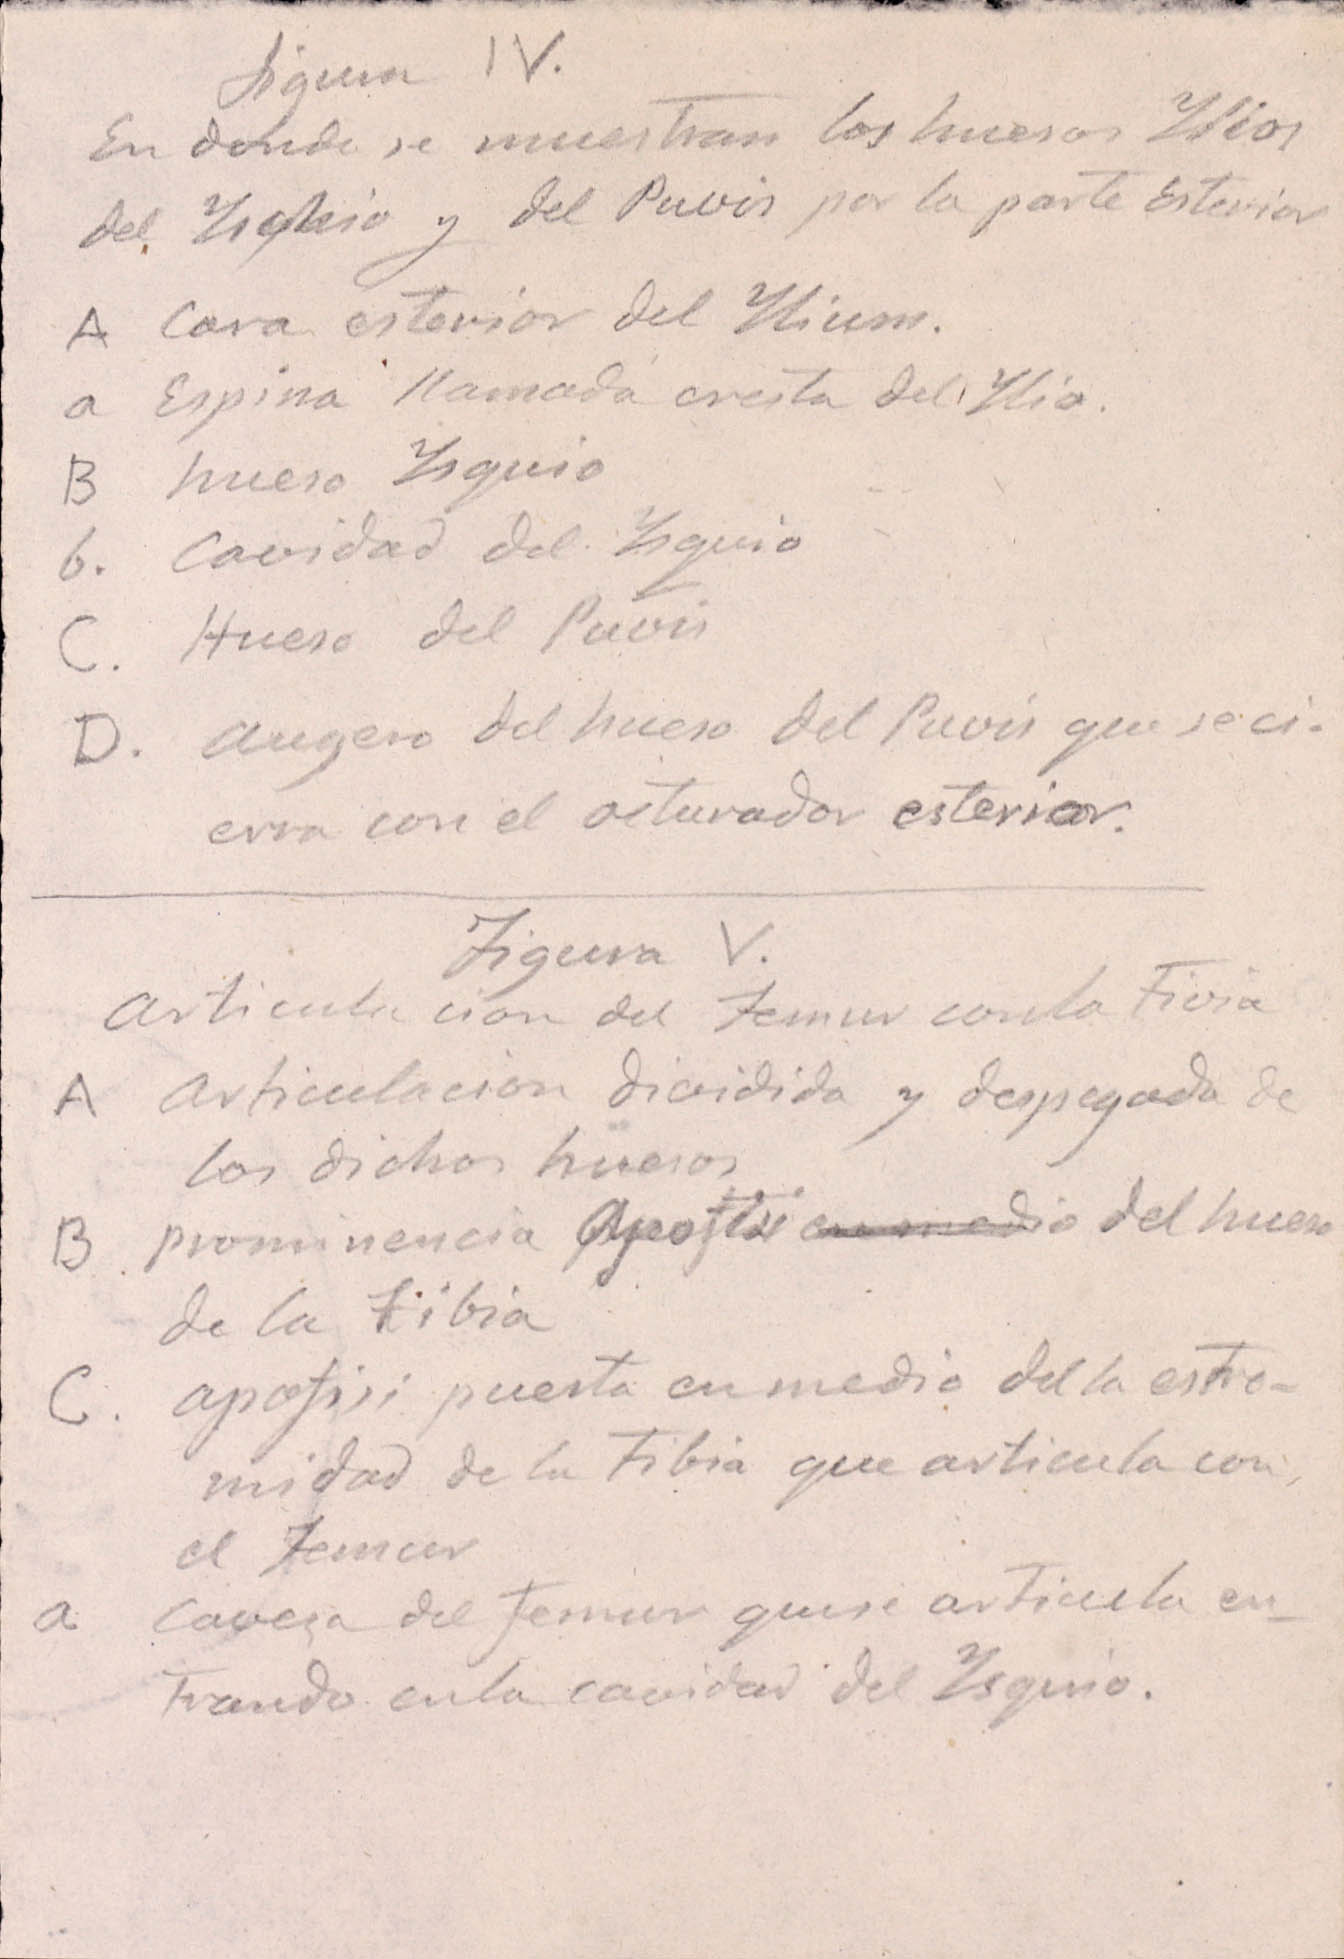 Figura IV.
En donde se muestran los huesos Ylios
del Ysquio y del Puvis por la parte Esterior
A Cara esterior del Ylium.
a Espina llamada cresta del Ylio.
B hueso Ysquio
b. Cavidad del Ysquio
C. Hueso del Puvis
D. augero del hueso del Puvis que se ci-
erra con el oturador esterior.
Figura V.
Articulacion del Femur con la Tivia
A Articulacion dividida y despegada de
los dichos huesos
B prominencia en medio del hueso
de la Tibia
C. apofisi puesta en medio del la estre-
midad de la Tibia que articula con
el Femur
a Caveza del femur que se articula en-
trando en la cavidad del Ysquio.